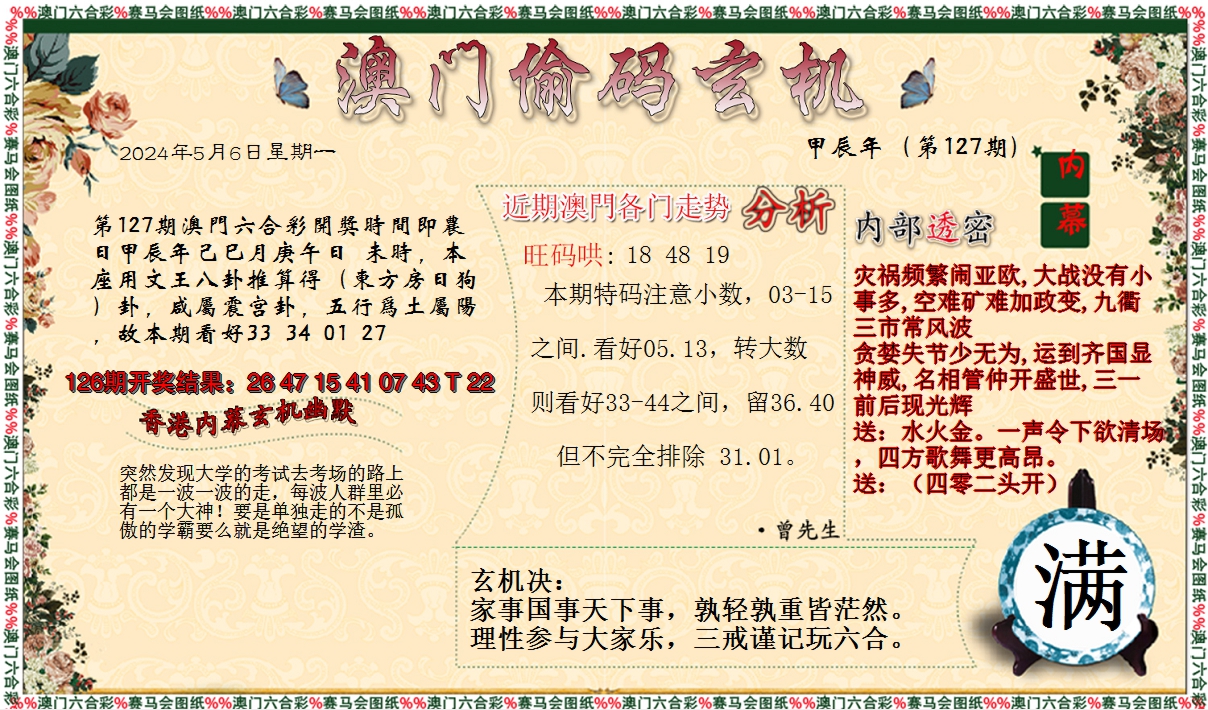 %%澳门六合彩%赛马会图纸%%澳门六合彩%赛马会图纸%%澳门六合彩%赛马会图纸%%澳门六合彩%赛马会图纸%%澳门六合彩%赛马会图纸%%澳门六合彩%赛马会图纸%%
澳门偷码玄机
2024年5月6日星期一
甲辰年（第127期）
第127期澳門六合彩開獎時間即農
日甲辰年己巳月庚午日 未時，本
座用文王八卦推算得（東方房日狗
）卦，咸屬震宫卦，五行爲土屬陽
，故本期看好33 34 01 27
126期开奖结果：26 47 15 41 07 43 T 22
香港内幕玄机幽默
突然发现大学的考试去考场的路上
都是一波一波的走，每波人群里必
有一个大神！要是单独走的不是孤
傲的学霸要么就是绝望的学渣。
近期澳門各门走势 分析
旺码哄: 18 48 19
本期特码注意小数，03-15
之间.看好05.13，转大数
则看好33-44之间，留36.40
但不完全排除 31.01。
·曾先生
内幕
内部透密
灾祸频繁闹亚欧,大战没有小
事多,空难矿难加政变,九衢
三市常风波
贪婪失节少无为,运到齐国显
神威,名相管仲开盛世,三一
前后现光辉
送：水火金。一声令下欲清场
，四方歌舞更高昂。
送：（四零二头开）
玄机决：
家事国事天下事，孰轻孰重皆茫然。
理性参与大家乐，三戒谨记玩六合。
满
%%澳门六合彩%赛马会图纸%%澳门六合彩%赛马会图纸%%澳门六合彩%赛马会图纸%%澳门六合彩%赛马会图纸%%澳门六合彩%赛马会图纸%%澳门六合彩%赛马会图纸%%